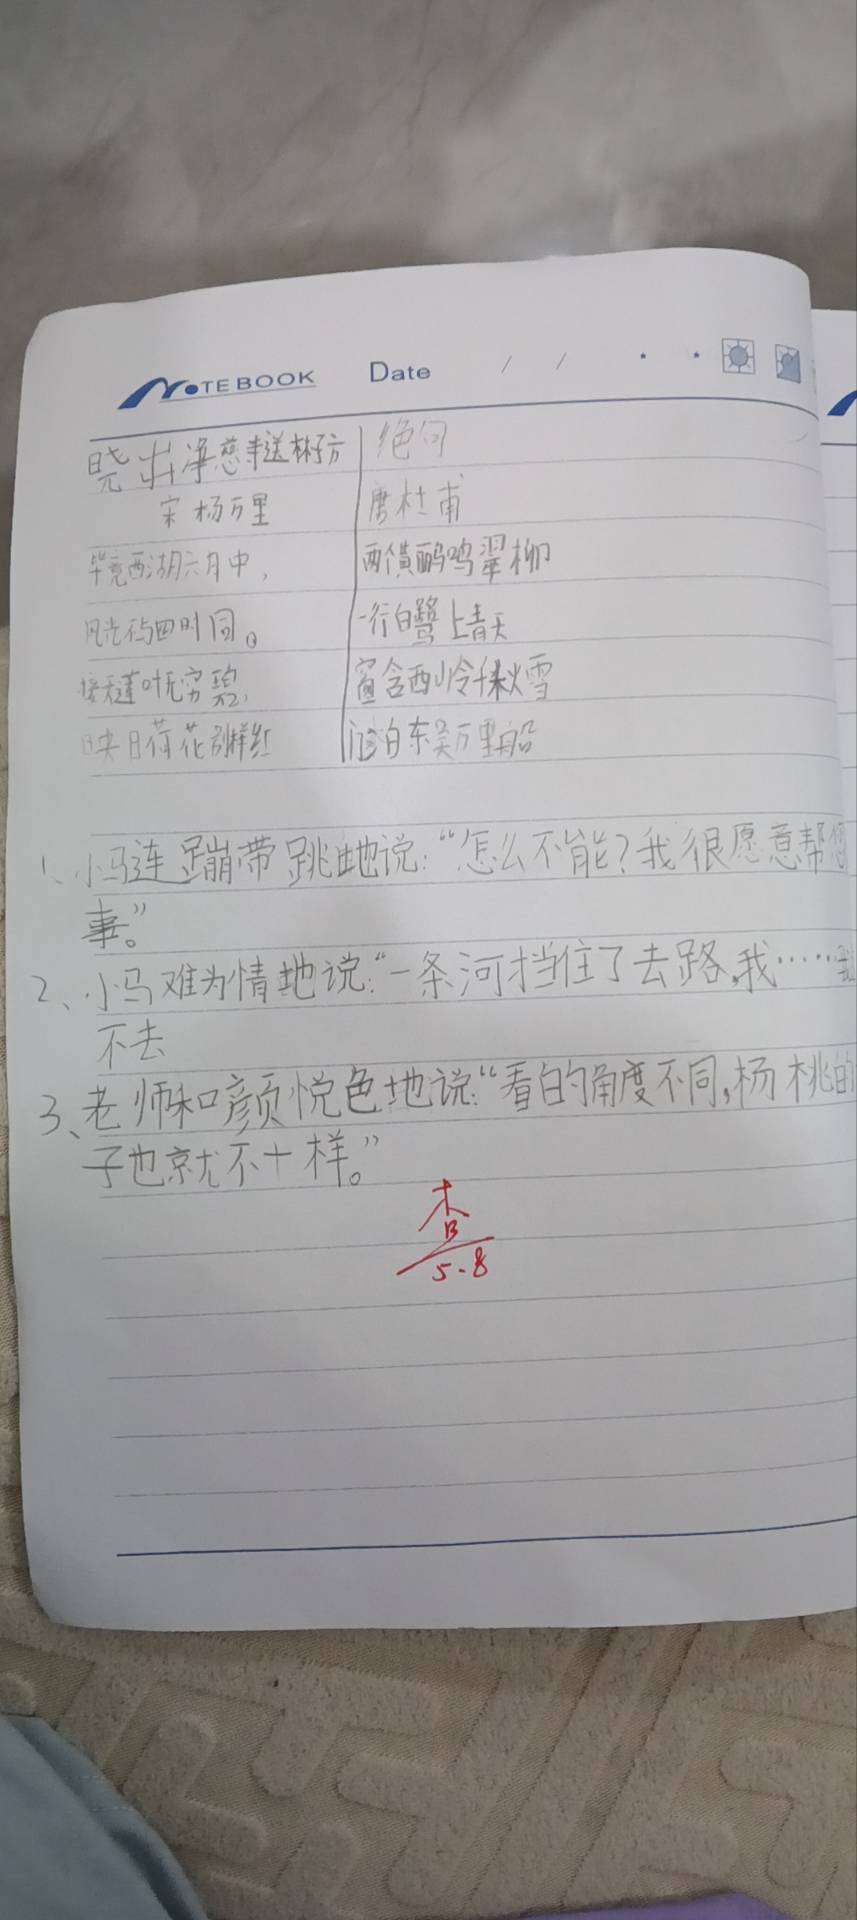 NOTEBOOK Date / /
晓出净慈寺送林子方
宋 杨万里
毕竟西湖六月中，
风光不与四时同。
接天莲叶无穷碧，
映日荷花别样红
绝句
唐 杜甫
两个黄鹂鸣翠柳
一行白鹭上青天
窗含西岭千秋雪
门泊东吴万里船
1、小马连蹦带跳地说：“怎么不能？我很愿意帮您
事。”
2、小马难为情地说：“一条河挡住了去路，我……
不去
3、老师和颜悦色地说：“看的角度不同，杨桃的
子也就不一样。”
查
5.8